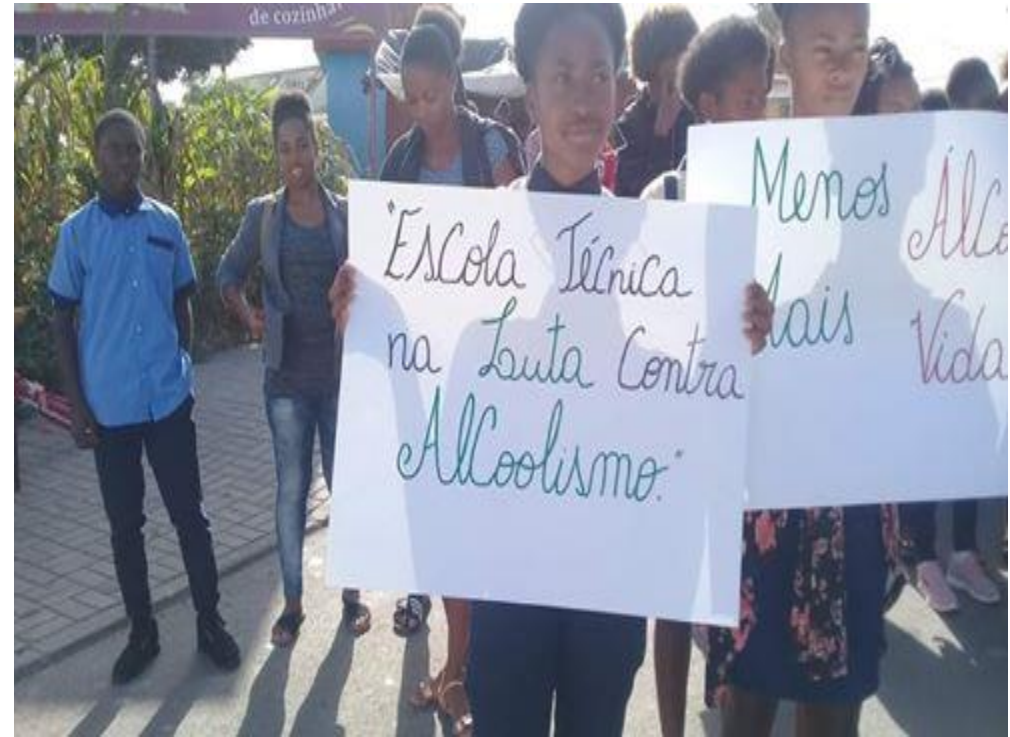 de cozinha
"Escola Técnica
na Lauta Contra
AlCoolismo."
Menos Álco
Mais Vida